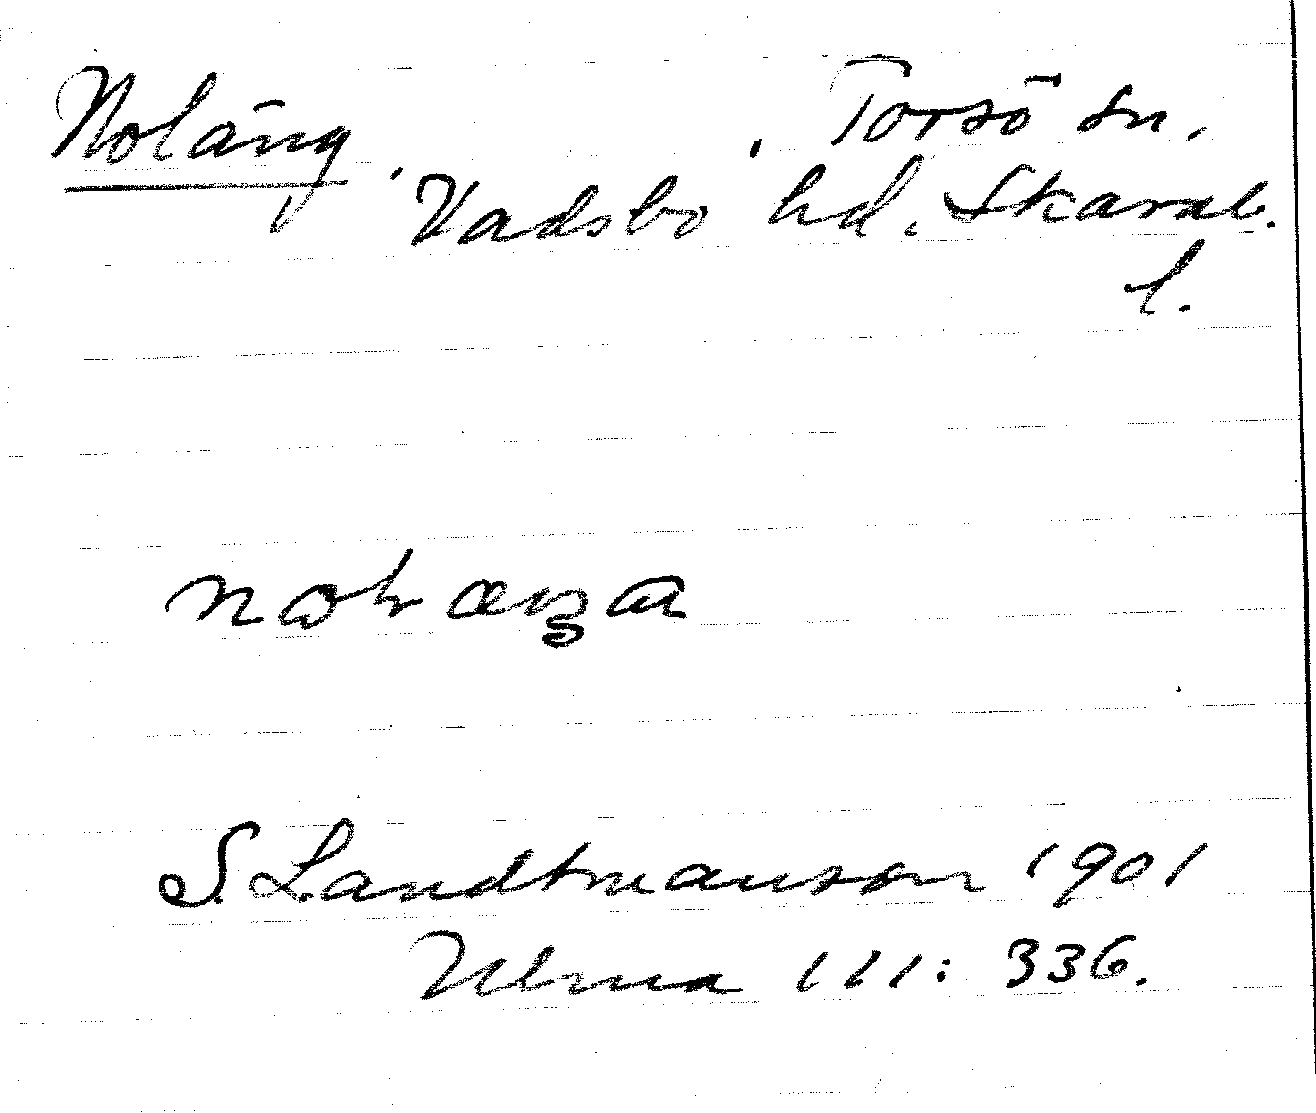 Noläng, Torsö sn.
Vadsbo hd. Skarab.
l.
S Landtmanson 1901
Ulma 111: 336.